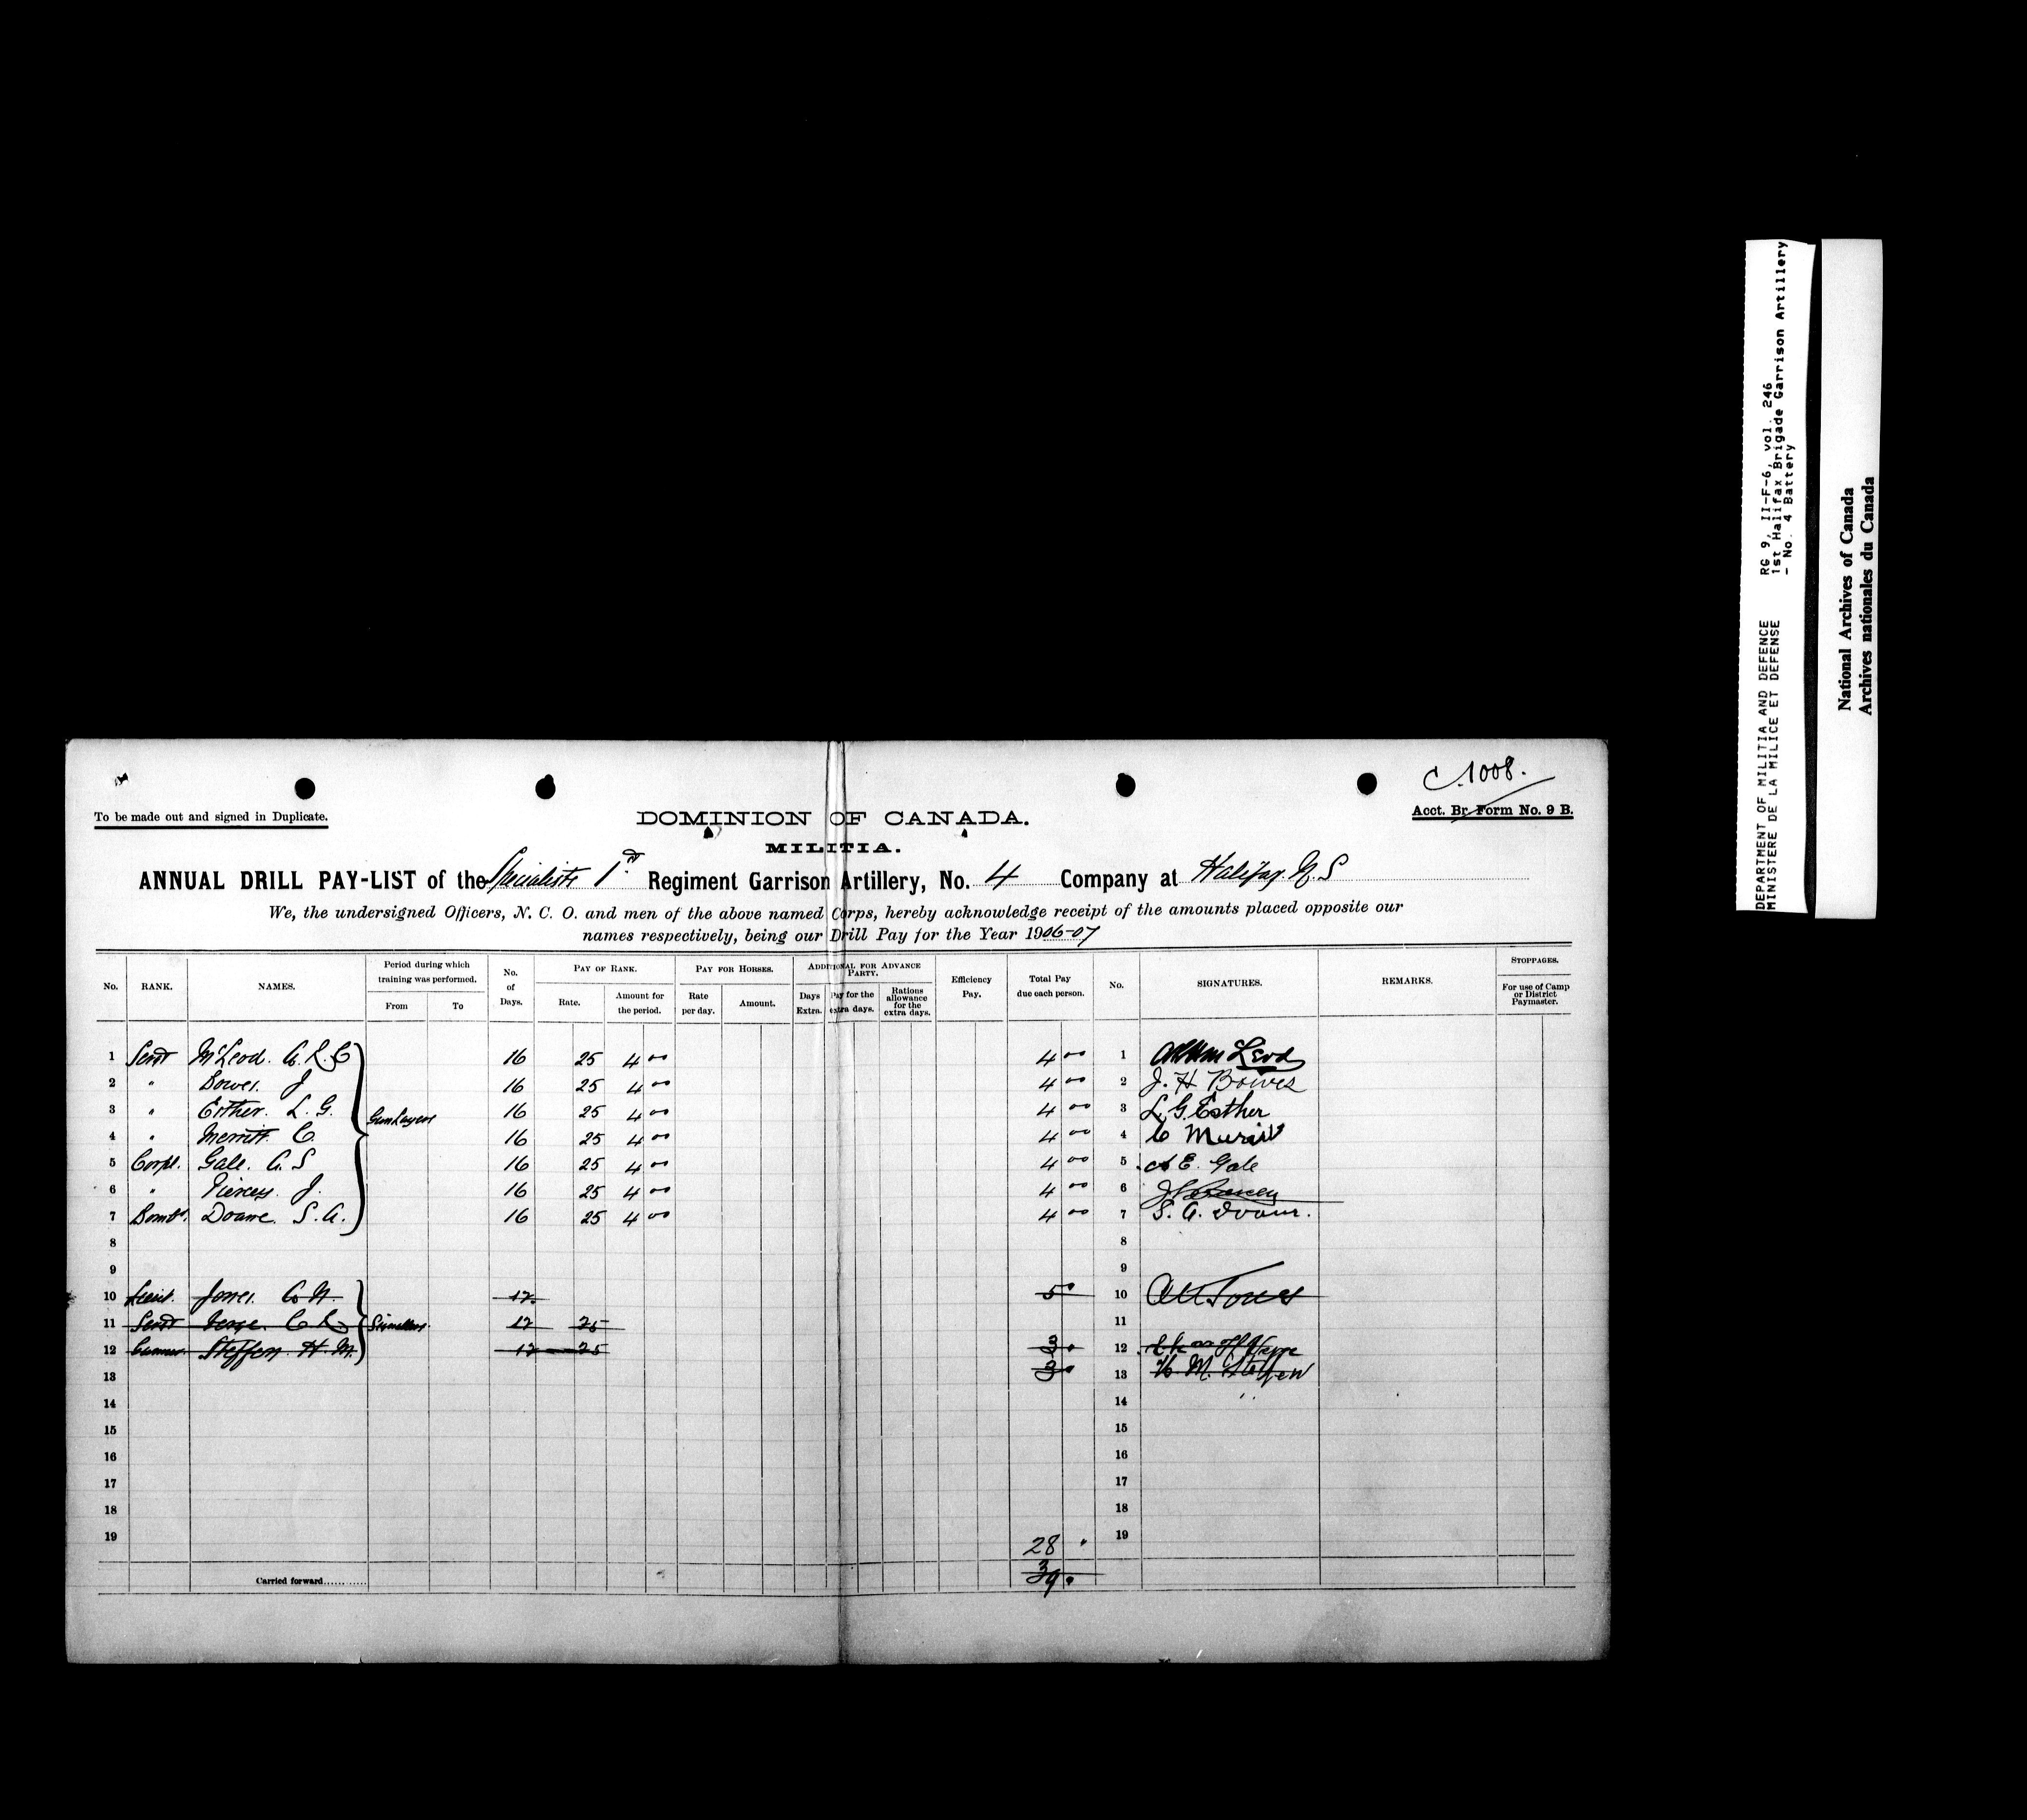 C.1008.
To be made out and signed in Duplicate.
Acct. Br. Form No. 9 B.
DOMINION OF CANADA.
MILITIA.
ANNUAL DRILL PAY-LIST of the Specialists 1st Regiment Garrison Artillery, No. 4 Company at Halifax N.S
We, the undersigned Officers, N. C. O. and men of the above named Corps, hereby acknowledge receipt of the amounts placed opposite our
names respectively, being our Drill Pay for the Year 1906-07
No. RANK. NAMES. Period during which training was performed. From To No. of Days. PAY OF RANK. Rate. Amount for the period. PAY FOR HORSES. Rate per day. Amount. ADDITIONAL FOR ADVANCE PARTY. Days Extra. Pay for the extra days. Rations allowance for the extra days. Efficiency Pay. Total Pay due each person. No. SIGNATURES. REMARKS. STOPPAGES. For use of Camp or District Paymaster.
1 Sergt McLeod. A. 16 25 4 00 4 00 1
2 " Bowes. J 16 25 4 00 4 00 2 J. H Bowes
3 " Esther. L. G. Gun Layers 16 25 4 00 4 00 3 L. G. Esther
4 " Merritt. C. 16 25 4 00 4 00 4 C
5 Corpl. Gale. A. S 16 25 4 00 4 00 5 A E. Gale
6 " Piercey. J. 16 25 4 00 4 00 6
7 Bombr. Doane. S. A. 16 25 4 00 4 00 7 S. A. Doane.
8 8
9 9
10 Lieut. Jones. C. N. 12. 5 " 10 Jones
11 Sergt C Signallers. 12 25 11
12 Gunner. Steffen. H. M. 12 25 3 " 12
13 3 " 13 H M. Steffen
14 14
15 15
16 16
17 17
18 18
19 19
28 "
Carried forward........... 39 "
DEPARTMENT OF MILITIA AND DEFENCE RG 9, II-F-6, vol. 246
MINISTERE DE LA MILICE ET DEFENSE 1st Halifax Brigade Garrison Artillery
- No. 4 Battery
National Archives of Canada
Archives nationales du Canada